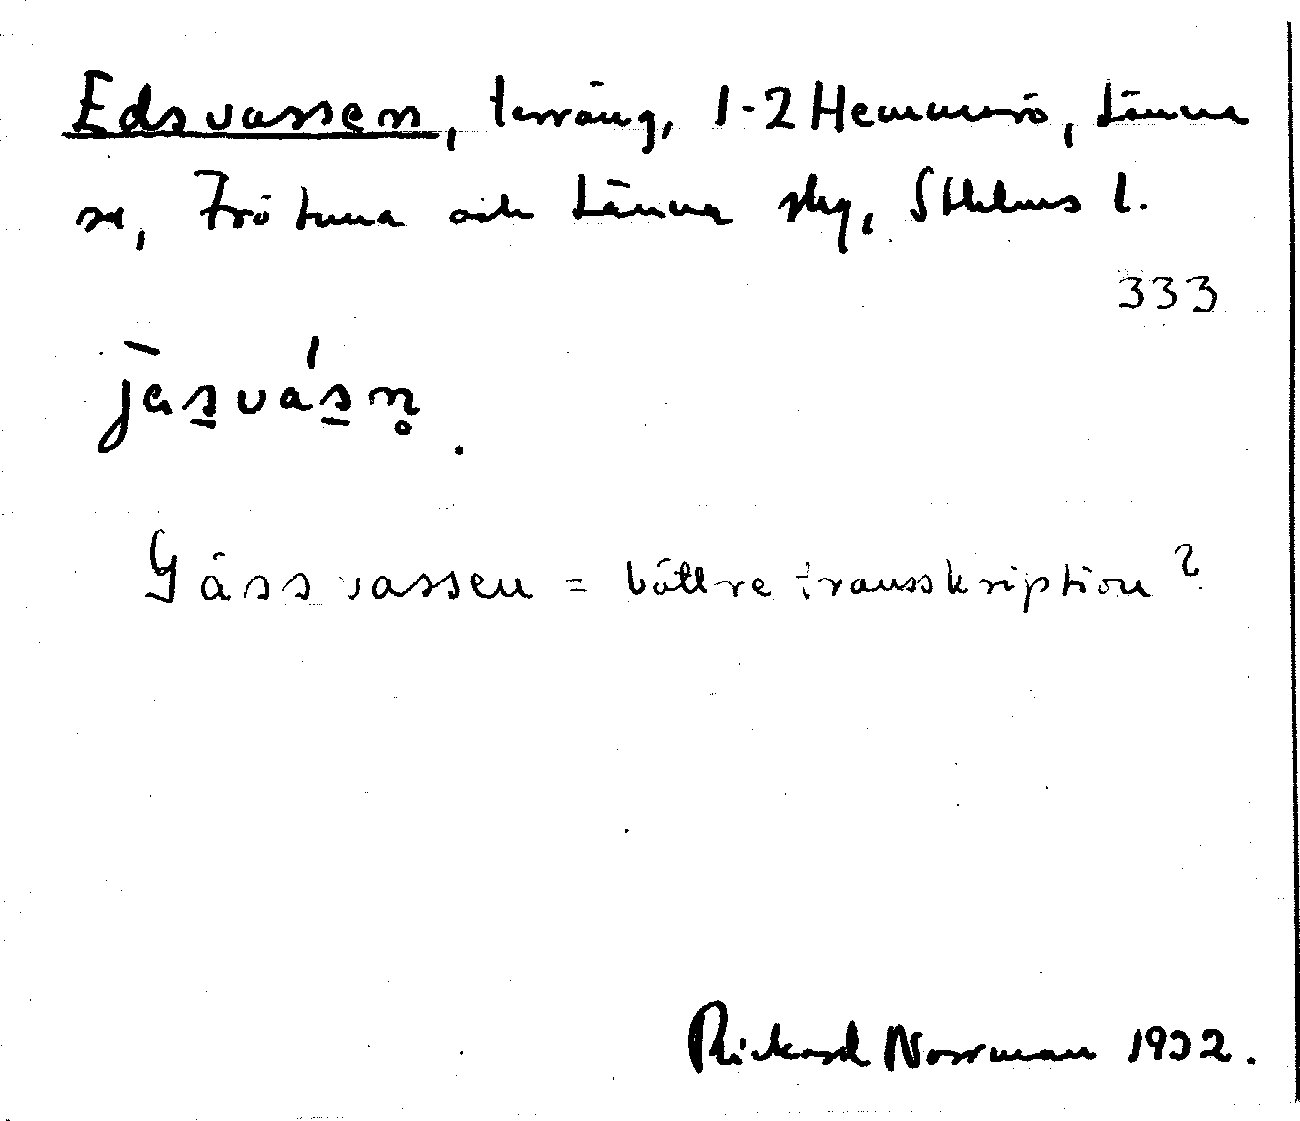 Edsvassen, terräng, 1-2 Hemmarö, Länna
sn, Frötuna och Länna skg, Sthlms l.
333
jas̱vás̱n̥.
Gässvassen = bättre transskription?
Rickard Norrman 1932.